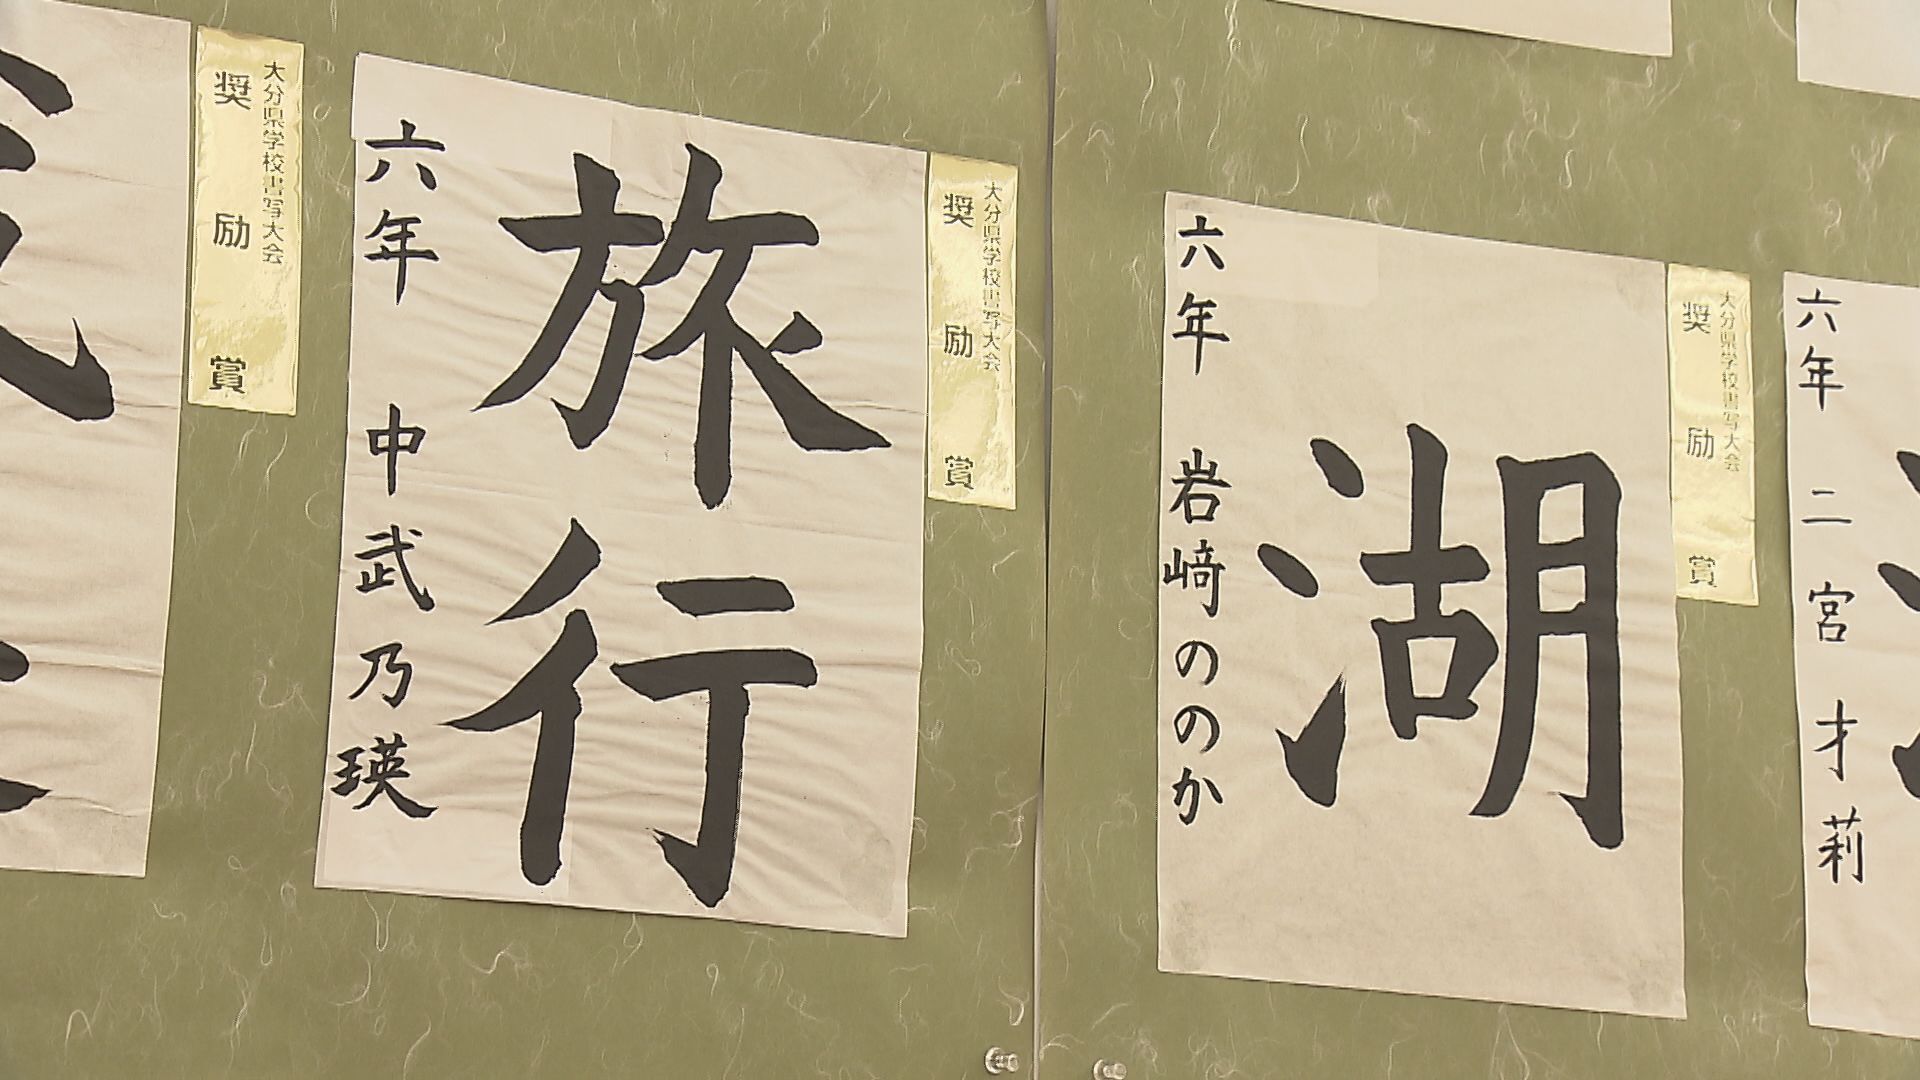 大分県学校書写大会
奨励賞
旅行
六年 中武乃瑛
大分県学校書写大会
奨励賞
湖
六年 岩﨑ののか
大分県学校書写大会
奨励賞
六年 二宮才莉